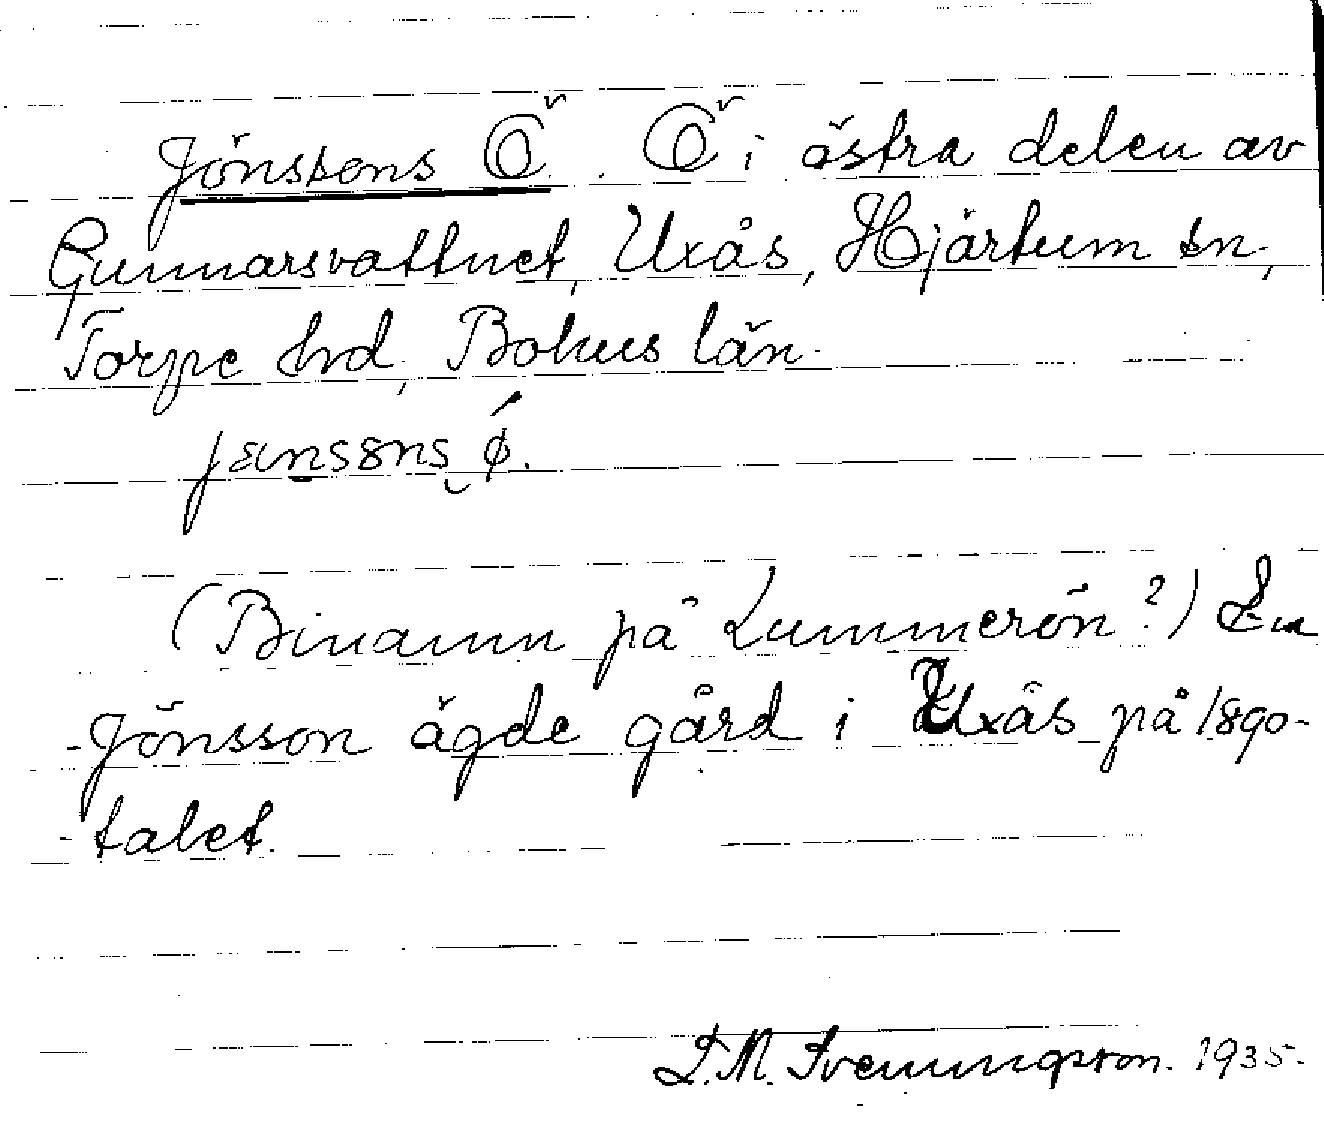 Jönssons Ö. Ö i östra delen av
Gunnarsvattnet, Uxås, Hjärtum sn,
Torpe hrd, Bohus län.
(Binamn på Lummerön?) En
Jönsson ägde gård i Uxås på 1890-
talet.
S.M. Svenungsson. 1935.